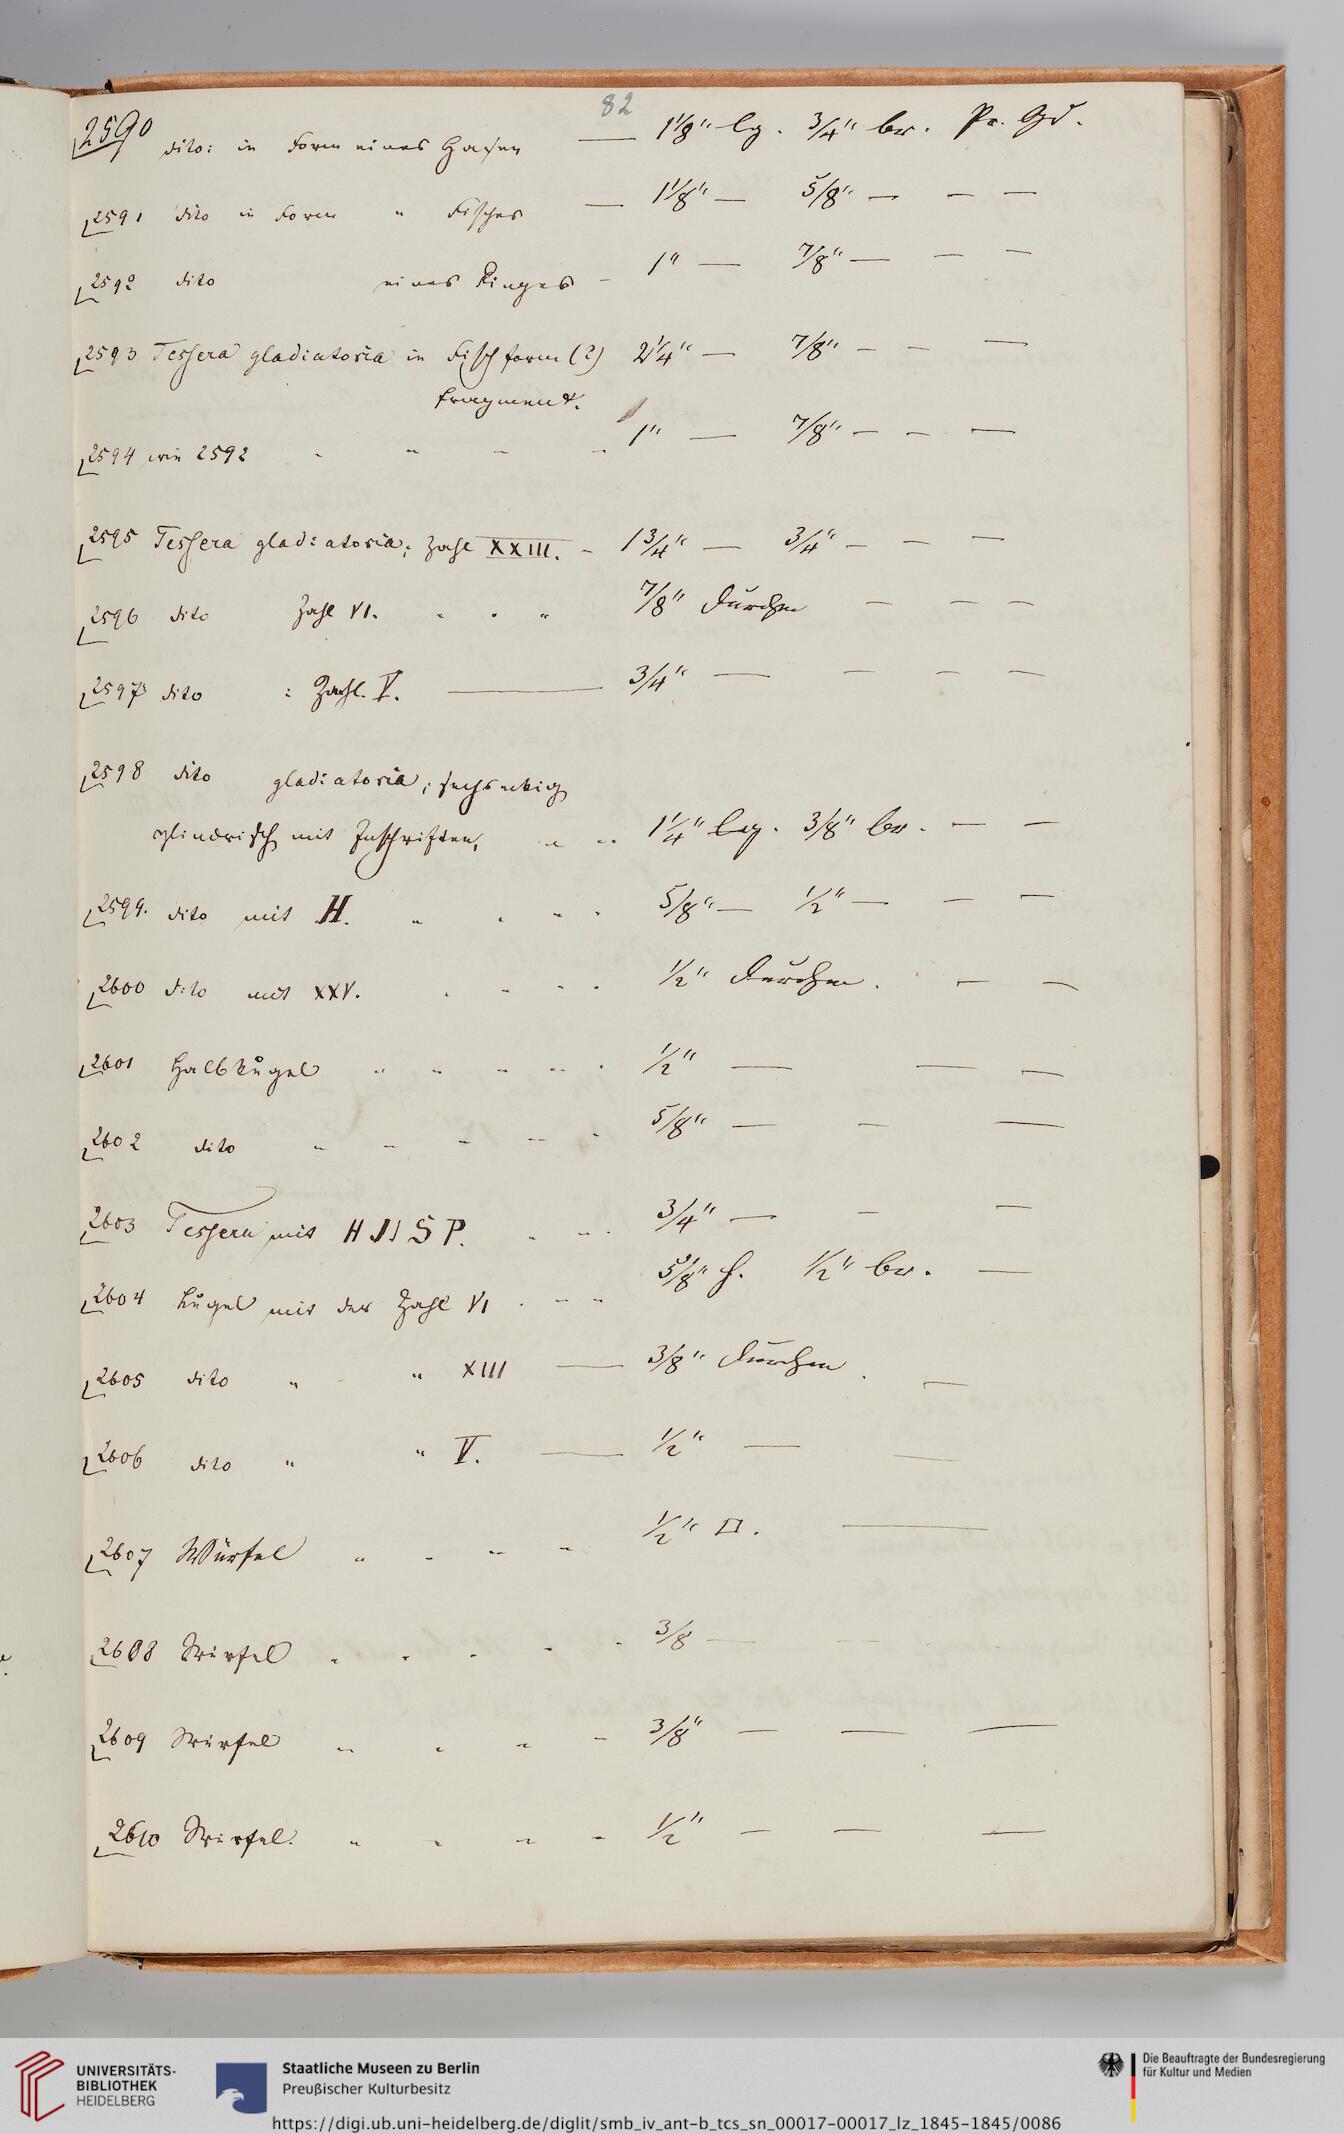 82
2590 dito: in Form eines Hasen — 1 1/8" lg. 3/4" br. Pr. Gd.
2591 dito in Form " Fisches — 1 1/8" — 5/8" — — —
2592 dito eines Ringes - 1" — 7/8" — — —
2593 Tessera gladiatoria in Fischform (?) 2 1/4" — 7/8" — — —
Fragment.
2594 wie 2592 - " - - 1" — 7/8" — — —
2595 Tessera gladiatoria; Zahl XXIII. - 1 3/4" — 3/4" — — —
2596 dito Zahl VI. - - " 7/8" Durchm — — —
2597 dito : Zahl. V. — 3/4" — — — —
2598 dito gladiatoria; sechseckig
cylindrisch mit Inschriften, " " 1 1/4" lg. 3/8" br. — —
2599. dito mit H. " - - - 5/8" — 1/2" — — —
2600 dito mit XXV. - - - - 1/2" Durchm. — —
2601 Halbkugel " - - - - 1/2" — — —
2602 dito - - - - - 5/8" — — —
2603 Tessera mit H S P. - - - 3/4" — — —
2604 Kugel mit der Zahl VI - - - 5/8" h. 1/2" br. —
2605 dito " " XIII — 3/8" Durchm. —
2606 dito " " V. — 1/2" — —
2607 Würfel " - - - 1/2" □. —
2608 Würfel - - - - - 3/8 — — —
2609 Würfel " - - - 3/8" — — —
2610 Würfel. " - - - 1/2" — — —
UNIVERSITÄTS-
BIBLIOTHEK
HEIDELBERG
Staatliche Museen zu Berlin
Preußischer Kulturbesitz
Die Beauftragte der Bundesregierung
für Kultur und Medien
https://digi.ub.uni-heidelberg.de/diglit/smb_iv_ant-b_tcs_sn_00017-00017_lz_1845-1845/0086